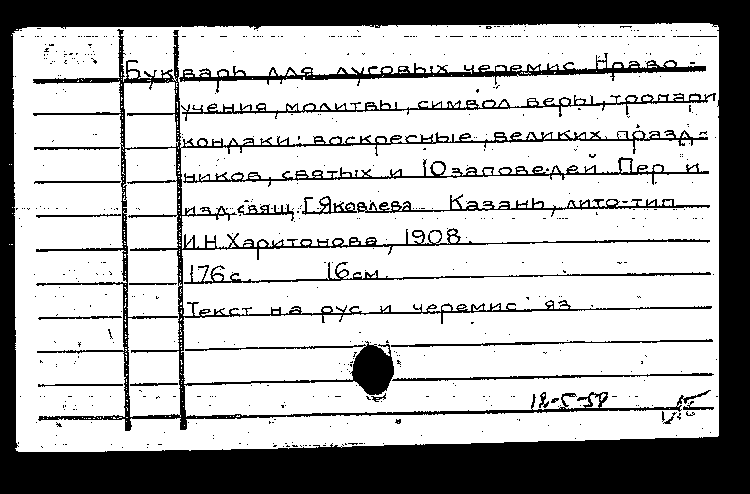 Букварь для луговых черемис. Нраво-
учения, молитвы, символ веры, тропари
кондаки: воскресные, великих празд-
ников, святых и 10 заповедей Пер и
изд. свящ. Г. Яковлева Казань, лито-тип
И.Н. Харитонова, 1908.
176 с. 16 см.
Текст на рус и черемис яз
18-5-50